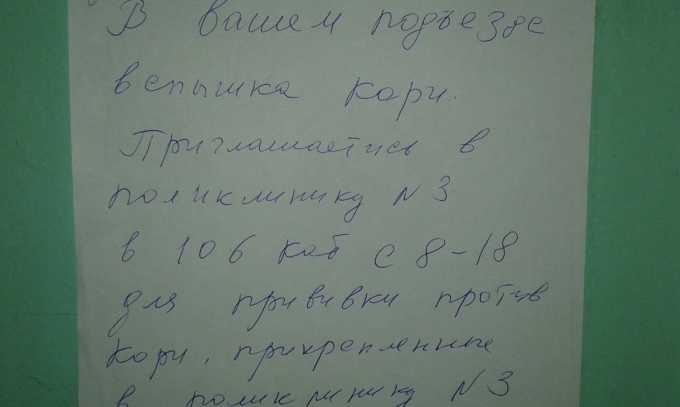 В вашем подъезде
вспышка кори.
Приглашаетись в
поликлинику N 3
в 106 каб с 8-18
для прививки против
кори, прикрепленные
в поликлинику N 3